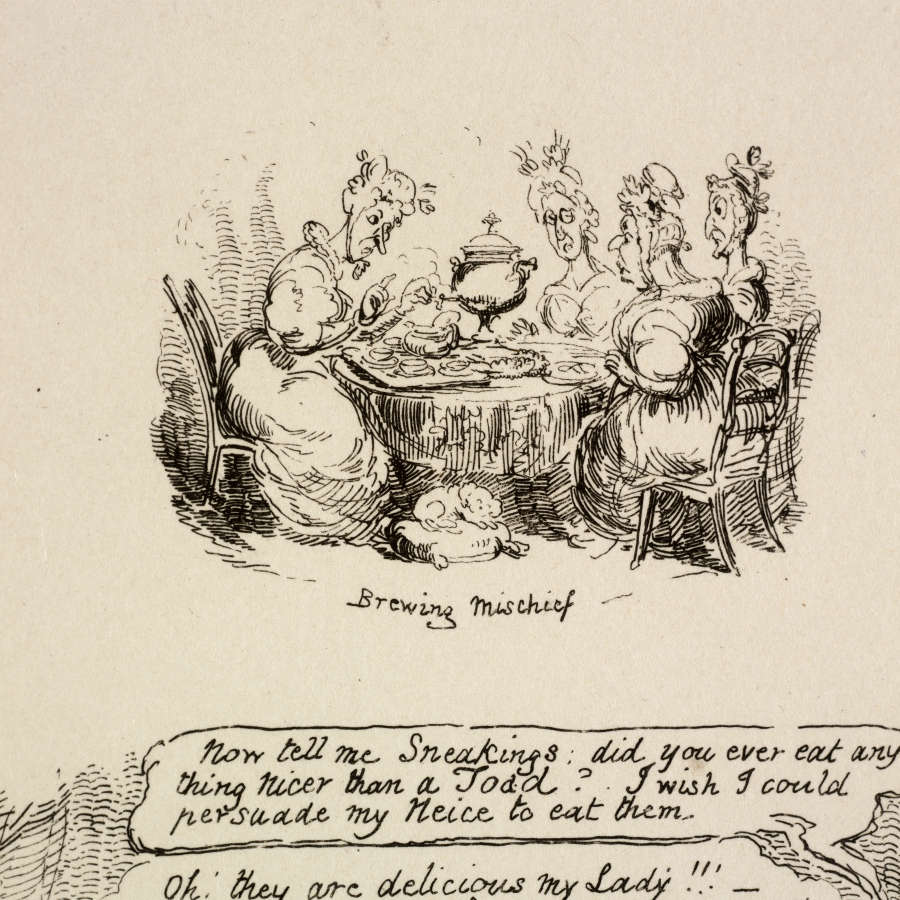 Brewing Mischief
Now tell me Sneakings; did you ever eat any
thing nicer than a Toad? I wish I could
persuade my Neice to eat them.
Oh! they are delicious my Lady!!! —